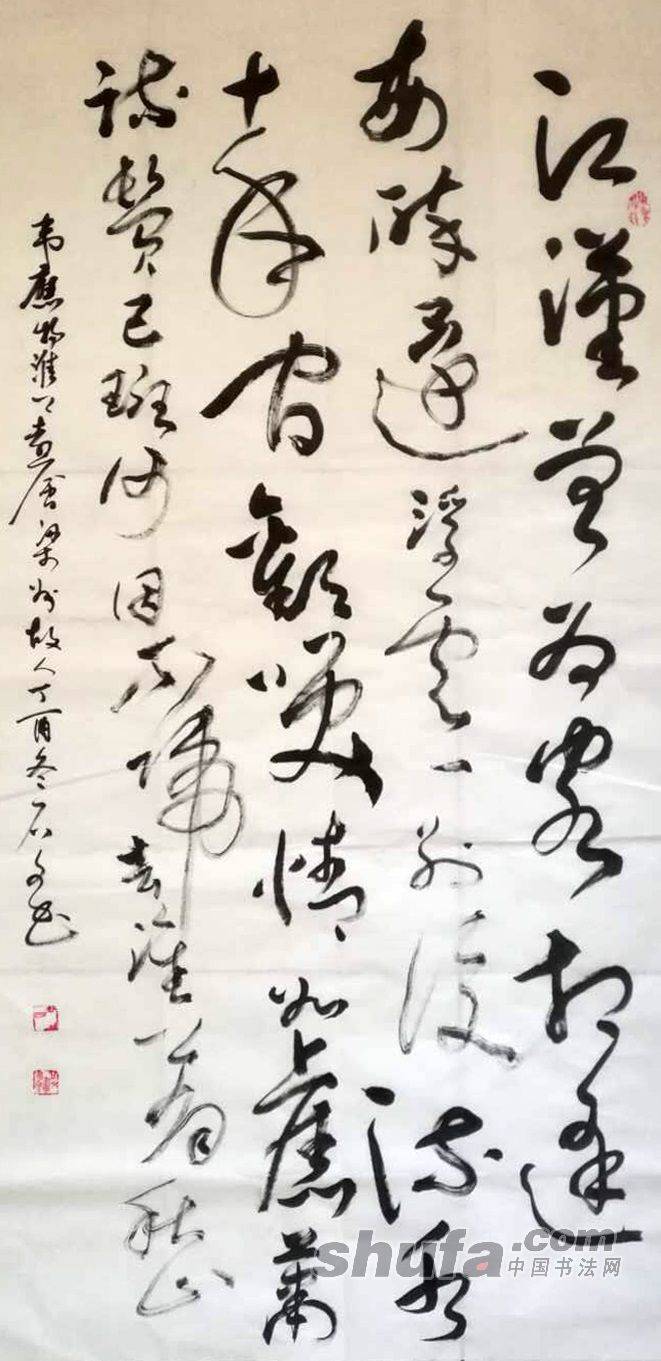 江漢曾為客相逢
每醉還浮雲一別後流水
十年間歡笑情如舊蕭
疏鬢已斑何因不歸去淮上有秋山
韋應物淮上喜會梁州故人丁酉冬石文书
shufa.com
中国书法网